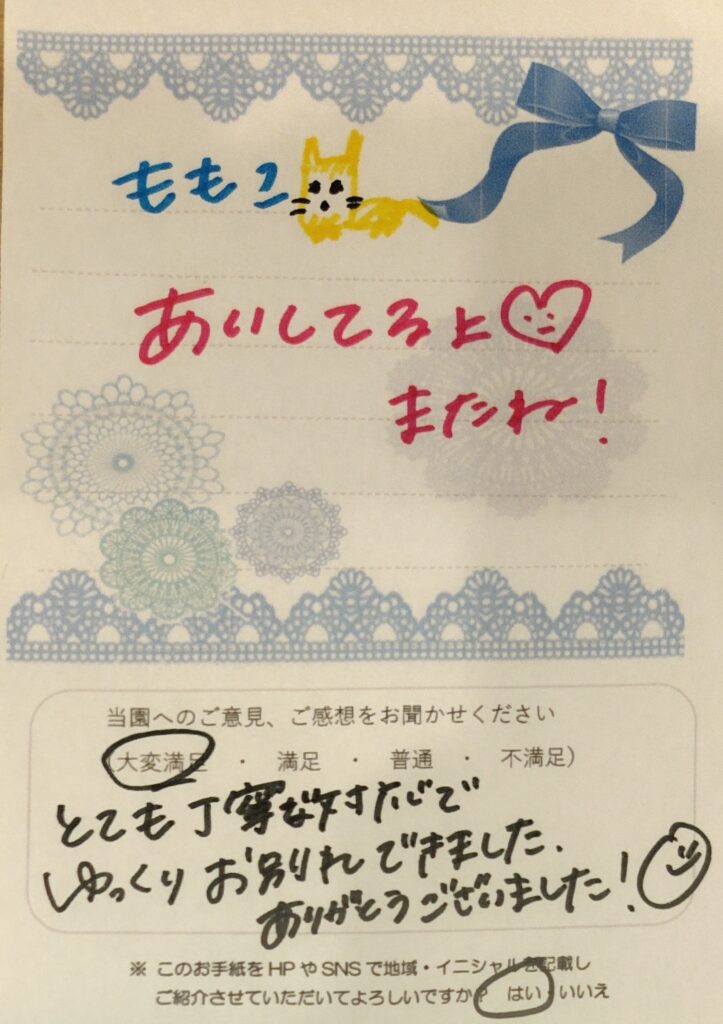 ももこ
あいしてるよ♡
またね！
当園へのご意見、ご感想をお聞かせください
（大変満足 ・ 満足 ・ 普通 ・ 不満足）
とても丁寧な対応で
ゆっくりお別れできました.
ありがとうございました！
※ このお手紙をHPやSNSで地域・イニシャルを記載し
ご紹介させていただいてよろしいですか？ はい・いいえ